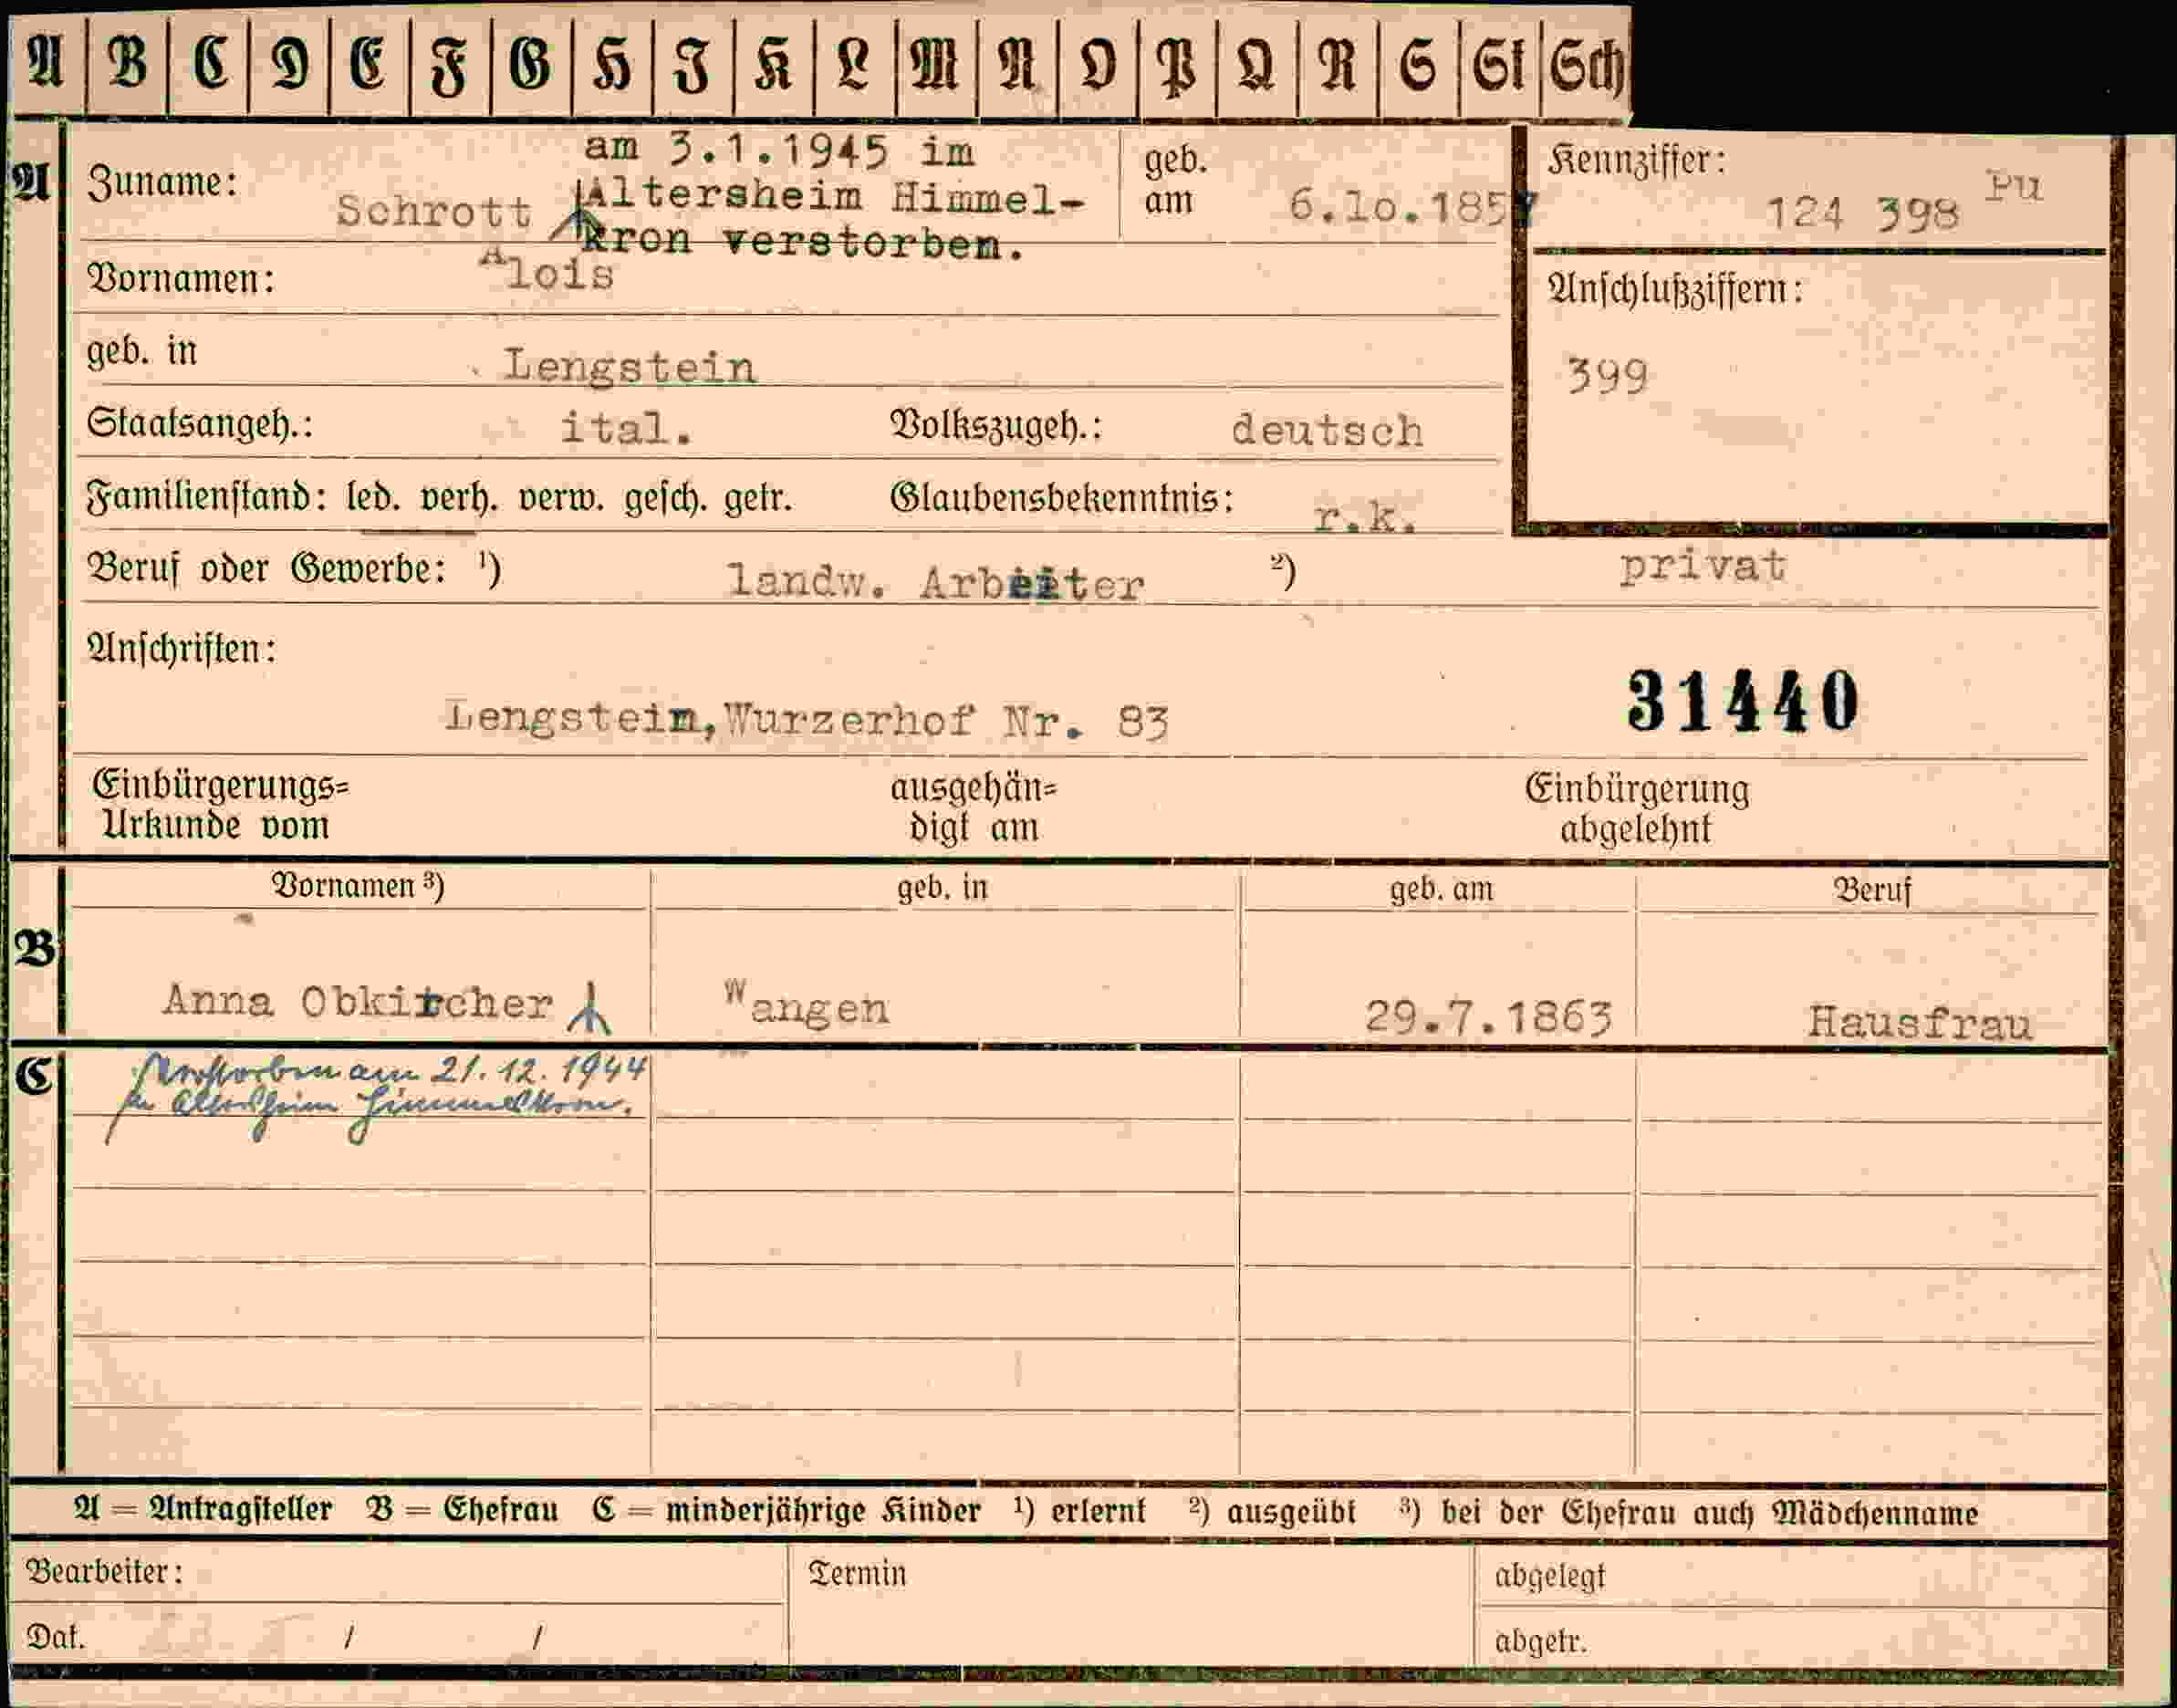 A B C D E F G H I K L M N O P Q R S St Sch
am 3.1.1945 im
A Zuname: Schrott Altersheim Himmel- geb. am 6.10.1857 Kennziffer: 124 398 Pu
kron verstorben.
Vornamen: Alois Anschlußziffern:
geb. in Lengstein 399
Staatsangeh.: ital. Volkszugeh.: deutsch
Familienstand: led. verh. verw. gesch. getr. Glaubensbekenntnis: r.k.
Beruf oder Gewerbe: ¹) landw. Arbeiter ²) privat
Anschriften:
31440
Lengstein,Wurzerhof Nr. 83
Einbürgerungs= ausgehän= Einbürgerung
Urkunde vom digt am abgelehnt
Vornamen ³) geb. in geb. am Beruf
B
Anna Obkircher Wangen 29.7.1863 Hausfrau
C Verstorben am 21.12.1944
im Altersheim Himmelkron.
A = Antragsteller B = Ehefrau C = minderjährige Kinder ¹) erlernt ²) ausgeübt ³) bei der Ehefrau auch Mädchenname
Bearbeiter: Termin abgelegt
Dat. / / abgetr.